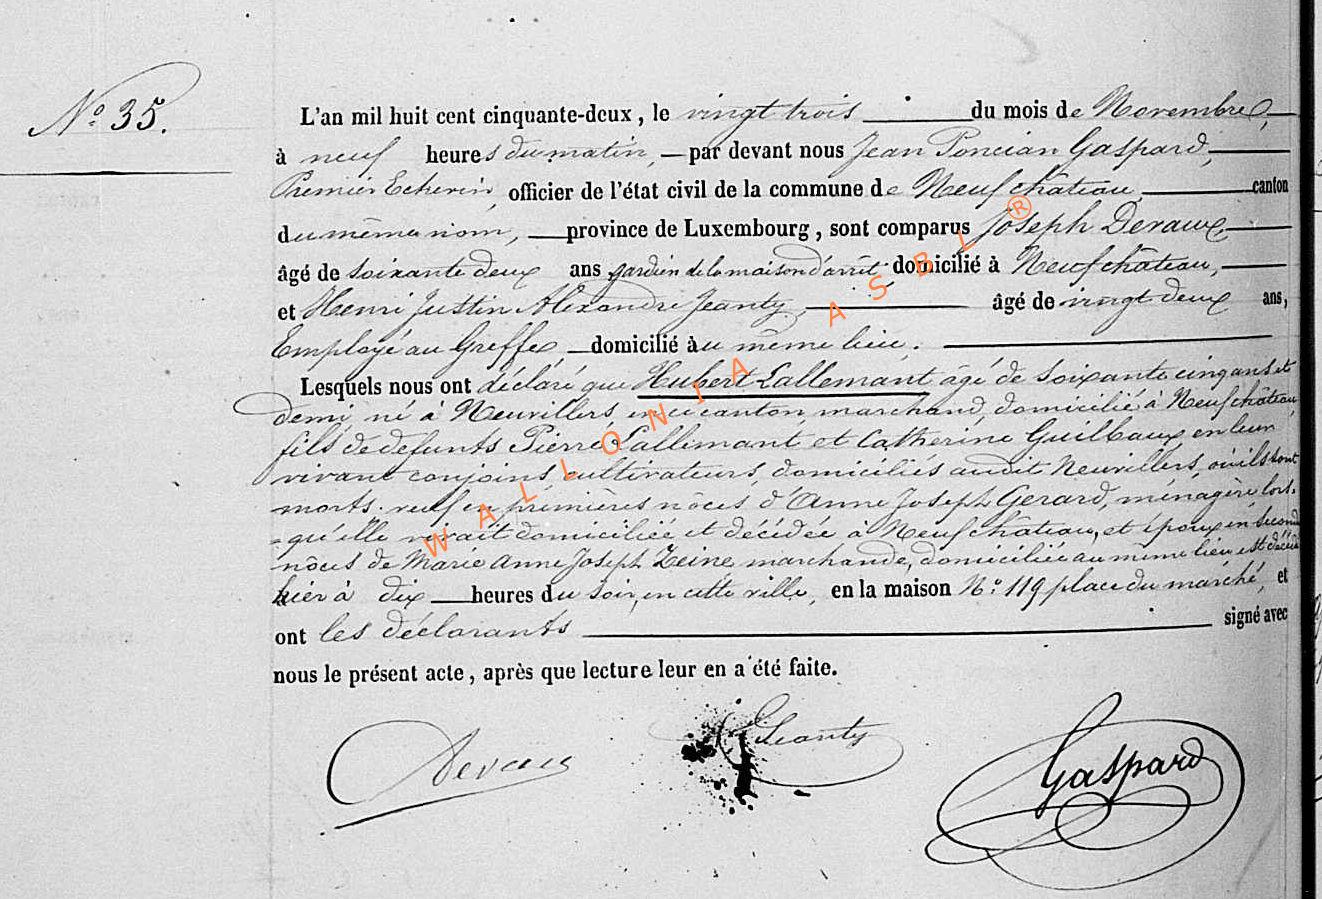 N.º 35.
L'an mil huit cent cinquante-deux, le vingt trois du mois de Novembre,
à neuf heures du matin, par devant nous Jean Poncian Gaspard,
Premier Echevin, officier de l'état civil de la commune de Neufchâteau, canton
du même nom, province de Luxembourg, sont comparus Joseph Devaux,
âgé de soixante deux ans gardien de la maison d'arrêt domicilié à Neufchâteau,
et Henri Justin Alexandre Jeanty, âgé de vingt deux ans,
Employé au Greffe, domicilié au même lieu.
Lesquels nous ont déclaré que Hubert Lallemant âgé de soixante cinq ans et
demi, né à Neuvillers, en ce canton, marchand, domicilié à Neufchâteau,
fils de defunts Pierre Lallemant et Catherine Guilbaux, en leur
vivant conjoins, cultivateurs, domiciliés audit Neuvillers, où ils sont
morts. veuf en premières nôces d'Anne Joseph Gerard, ménagère lors-
-qu'elle vivait domiciliée et décédée à Neufchâteau, et époux en secondes
nôces de Marie Anne Joseph Zeine marchande, domiciliée au même lieu est décédé
hier à dix heures du soir, en cette ville, en la maison N.º 119 place du marché, et
ont les déclarants signé avec
nous le présent acte, après que lecture leur en a été faite.
Devaux Jeanty Gaspard
WALLONIA ASBL ®